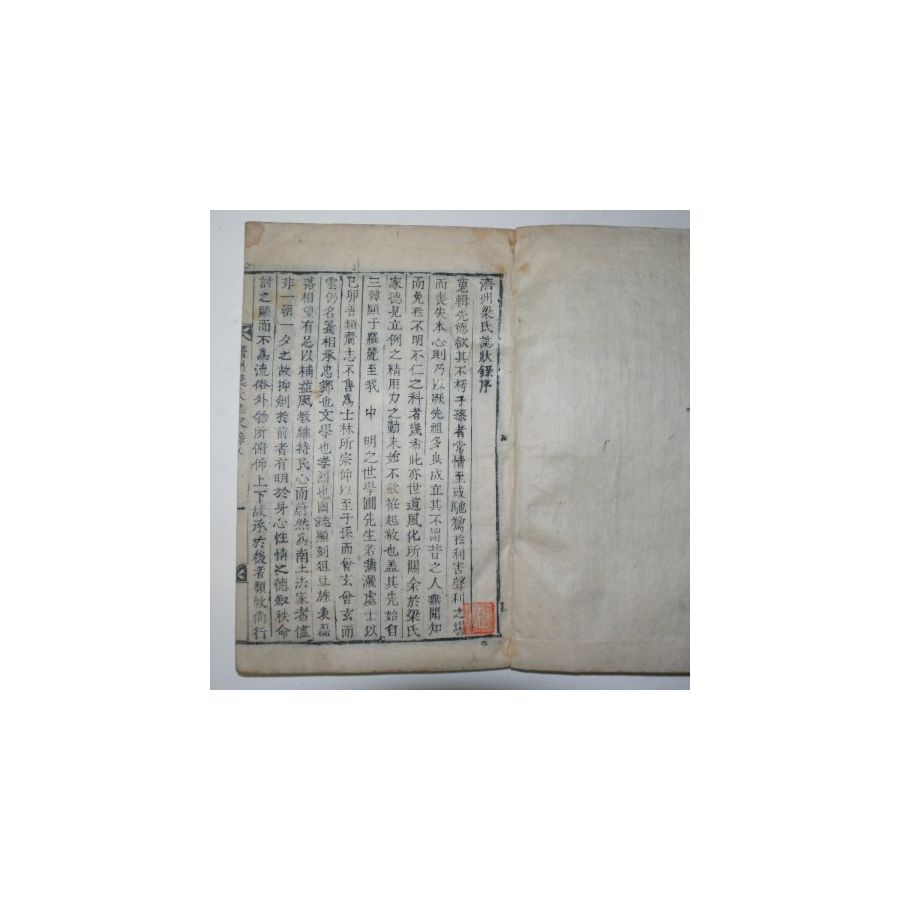 濟州梁氏誌狀錄序
蒐輯先德欲其不朽子孫者常情至或馳騖於利害聲利之場
而喪失本心則乃以厥先祖多良成立其不謂昔之人無聞知
而免於不明不仁之科者幾希此亦世道風化所關余於梁氏
家德見立例之精用力之勤未始不欲旌起敬也盖其先始自
三韓顯于羅麗至我 中 明之世學圃先生若瀟灑處士以
己卯音類齎志不售爲士林所宗仰以至子孫而曾玄曾玄而
雲仍名義相承忠節也文學也孝烈也幽誌顯刻狙豆旌表磊
落相望有足以補益風敎維持民心而蔚然爲南土法家者儘
非一朝一夕之故抑創於前者有明於身心性情之德叙秩命
討之顯而不爲流俗外物所俯仰上下故承於後者類敦尙行